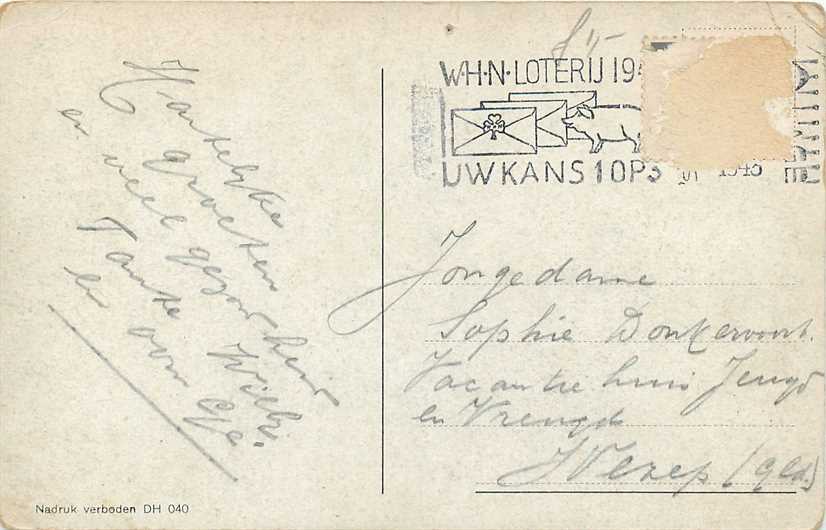 Hartelijke
groeten
en veel gezondheid
Tante Wilh.
en oom
W·H·N·LOTERIJ 19
UW KANS 1 OP 3
1943
Jongedame
Sophie Donkervoort.
Vacantie huis Jeugd
en Vreugd
Wezep (Geld.)
Nadruk verboden DH 040